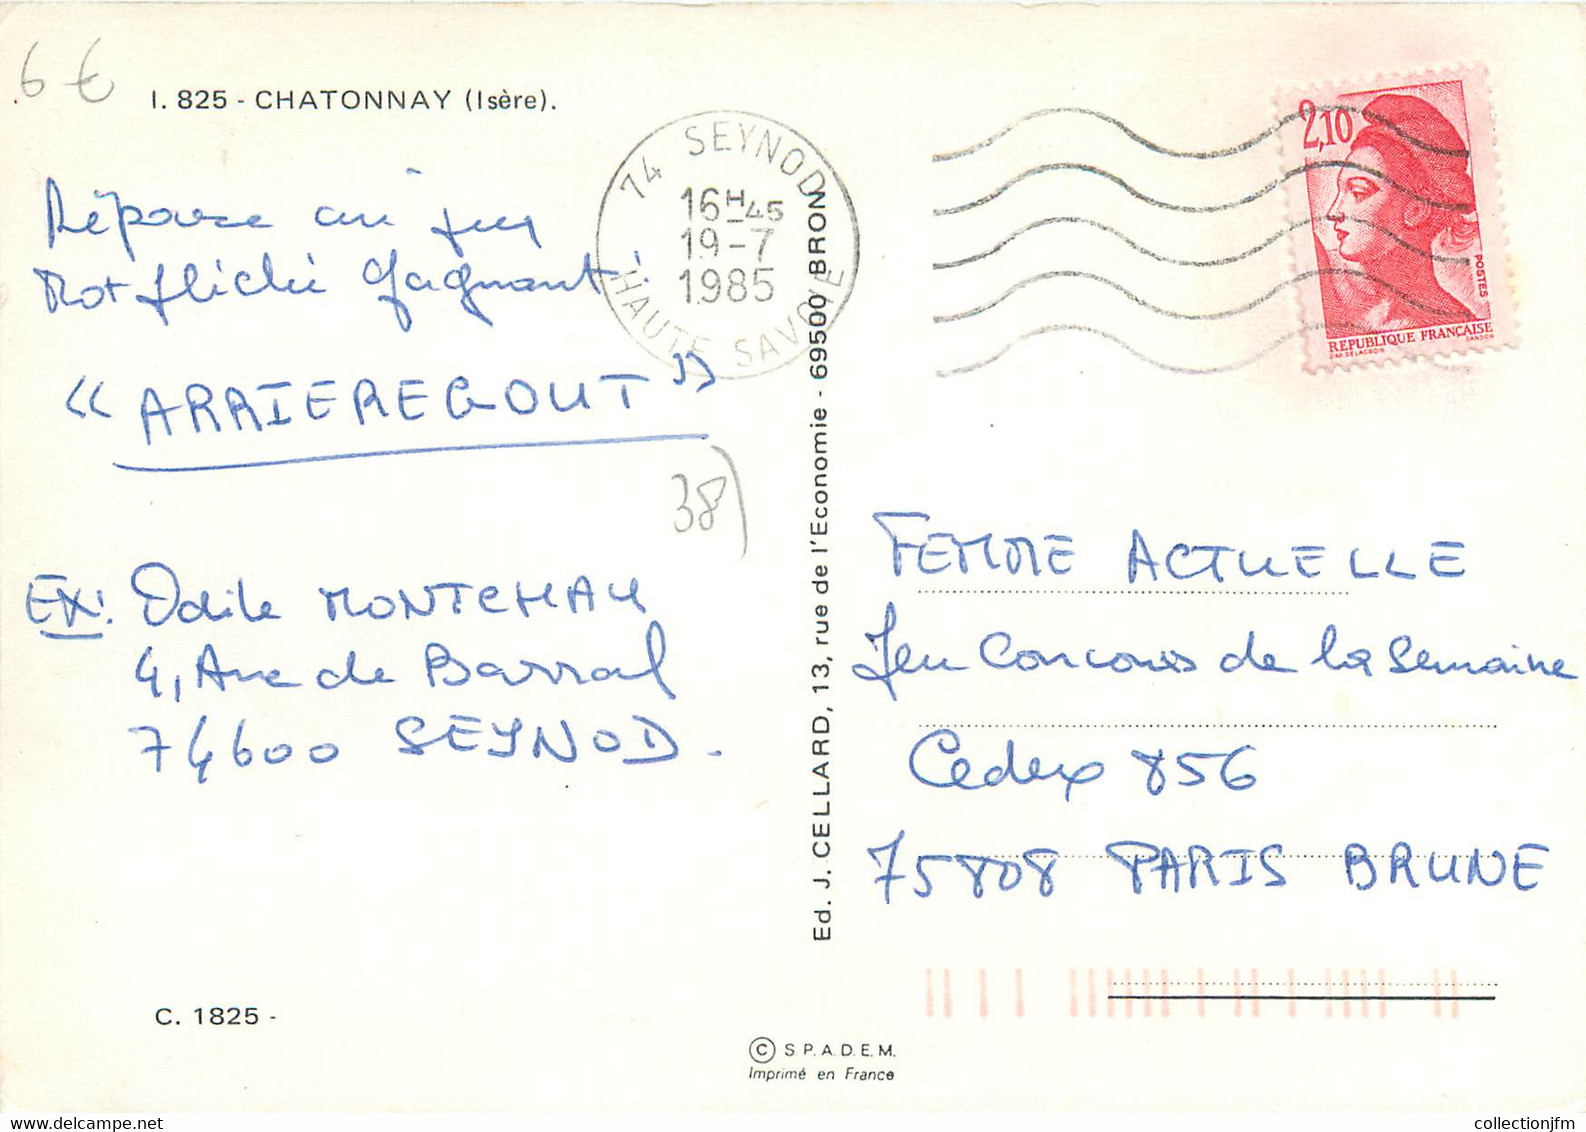 6 €
I. 825 - CHATONNAY (Isère).
Réponse au jeu
Mot fléché gagnant :
" ARRIEREGOUT "
38
EX: Odile MONTCHAU
4, Ave de Barral
74600 SEYNOD.
C. 1825 -
74 SEYNOD
16H-45
19-7
1985
HAUTE SAVOIE
Ed. J. CELLARD, 13, rue de l'Economie - 69500 BRON
2,10
POSTES
REPUBLIQUE FRANÇAISE
D'AP. DELACROIX
GANDON
FEMME ACTUELLE
Jeu Concours de la Semaine
Cedex 856
75808 PARIS BRUNE
© S.P.A.D.E.M.
Imprimé en France
collectionjfm